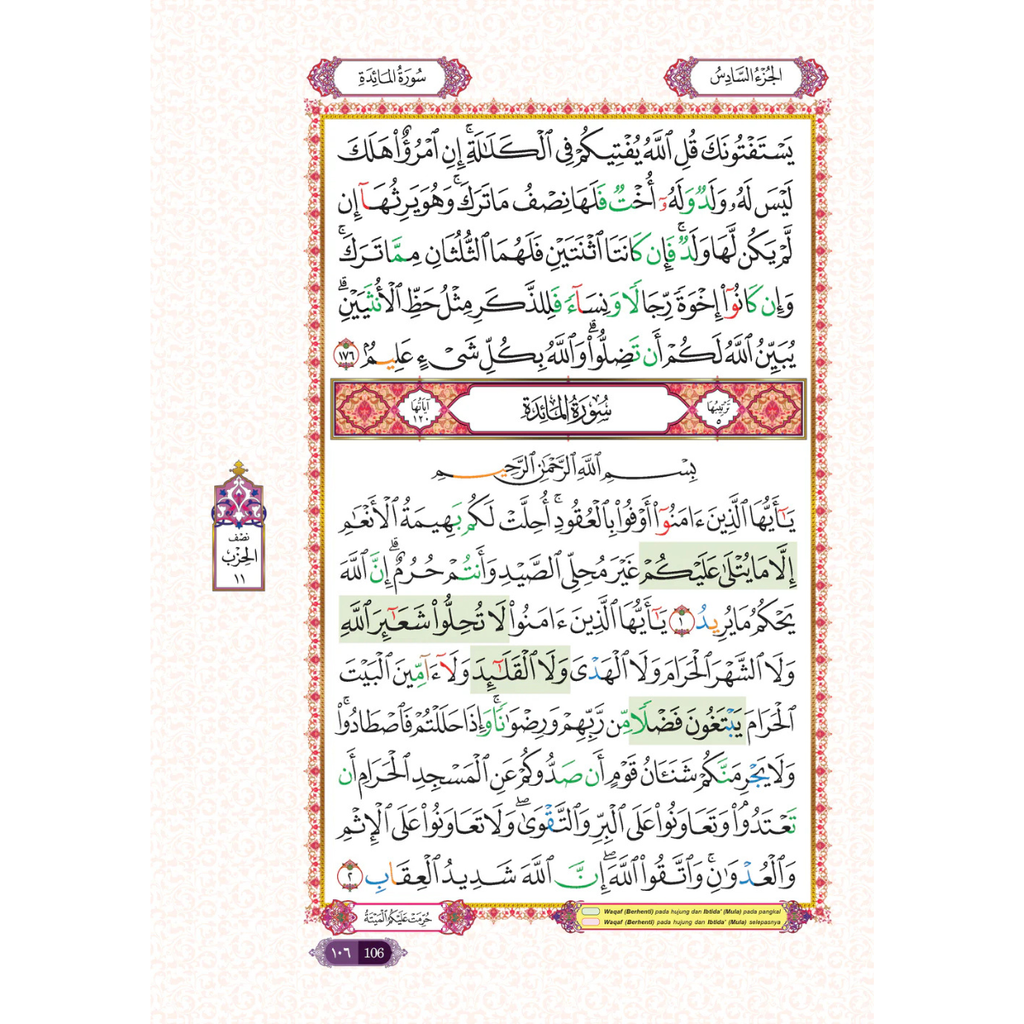 الجُزْءُ السَّادِسُ
سُورَةُ المَائِدَةِ
يَسْتَفْتُونَكَ قُلِ ٱللَّهُ يُفْتِيكُمْ فِى ٱلْكَلَٰلَةِ ۚ إِنِ ٱمْرُؤٌا۟ هَلَكَ
لَيْسَ لَهُۥ وَلَدٌ وَلَهُۥٓ أُخْتٌ فَلَهَا نِصْفُ مَا تَرَكَ ۚ وَهُوَ يَرِثُهَآ إِن
لَّمْ يَكُن لَّهَا وَلَدٌ ۚ فَإِن كَانَتَا ٱثْنَتَيْنِ فَلَهُمَا ٱلثُّلُثَانِ مِمَّا تَرَكَ ۚ
وَإِن كَانُوٓا۟ إِخْوَةً رِّجَالًا وَنِسَآءً فَلِلذَّكَرِ مِثْلُ حَظِّ ٱلْأُنثَيَيْنِ ۗ
يُبَيِّنُ ٱللَّهُ لَكُمْ أَن تَضِلُّوا۟ ۗ وَٱللَّهُ بِكُلِّ شَىْءٍ عَلِيمٌۢ ١٧٦
تَرْتِيبُهَا ٥
سُورَةُ المَائِدَةِ
آيَاتُهَا ١٢٠
بِسْمِ ٱللَّهِ ٱلرَّحْمَٰنِ ٱلرَّحِيمِ
يَٰٓأَيُّهَا ٱلَّذِينَ ءَامَنُوٓا۟ أَوْفُوا۟ بِٱلْعُقُودِ ۚ أُحِلَّتْ لَكُم بَهِيمَةُ ٱلْأَنْعَٰمِ
إِلَّا مَا يُتْلَىٰ عَلَيْكُمْ غَيْرَ مُحِلِّى ٱلصَّيْدِ وَأَنتُمْ حُرُمٌ ۗ إِنَّ ٱللَّهَ
يَحْكُمُ مَا يُرِيدُ ١ يَٰٓأَيُّهَا ٱلَّذِينَ ءَامَنُوا۟ لَا تُحِلُّوا۟ شَعَٰٓئِرَ ٱللَّهِ
وَلَا ٱلشَّهْرَ ٱلْحَرَامَ وَلَا ٱلْهَدْىَ وَلَا ٱلْقَلَٰٓئِدَ وَلَآ ءَآمِّينَ ٱلْبَيْتَ
ٱلْحَرَامَ يَبْتَغُونَ فَضْلًا مِّن رَّبِّهِمْ وَرِضْوَٰنًا ۚ وَإِذَا حَلَلْتُمْ فَٱصْطَادُوا۟ ۚ
وَلَا يَجْرِمَنَّكُمْ شَنَـَٔانُ قَوْمٍ أَن صَدُّوكُمْ عَنِ ٱلْمَسْجِدِ ٱلْحَرَامِ أَن
تَعْتَدُوا۟ ۘ وَتَعَاوَنُوا۟ عَلَى ٱلْبِرِّ وَٱلتَّقْوَىٰ ۖ وَلَا تَعَاوَنُوا۟ عَلَى ٱلْإِثْمِ
وَٱلْعُدْوَٰنِ ۚ وَٱتَّقُوا۟ ٱللَّهَ ۖ إِنَّ ٱللَّهَ شَدِيدُ ٱلْعِقَابِ ٢
نصف
الحِزْبُ
١١
Waqaf (Berhenti) pada hujung dan Ibtida' (Mula) pada pangkal
Waqaf (Berhenti) pada hujung dan Ibtida' (Mula) selepasnya
حُرِّمَتْ عَلَيْكُمُ الْمَيْتَةُ
١٠٦ 106